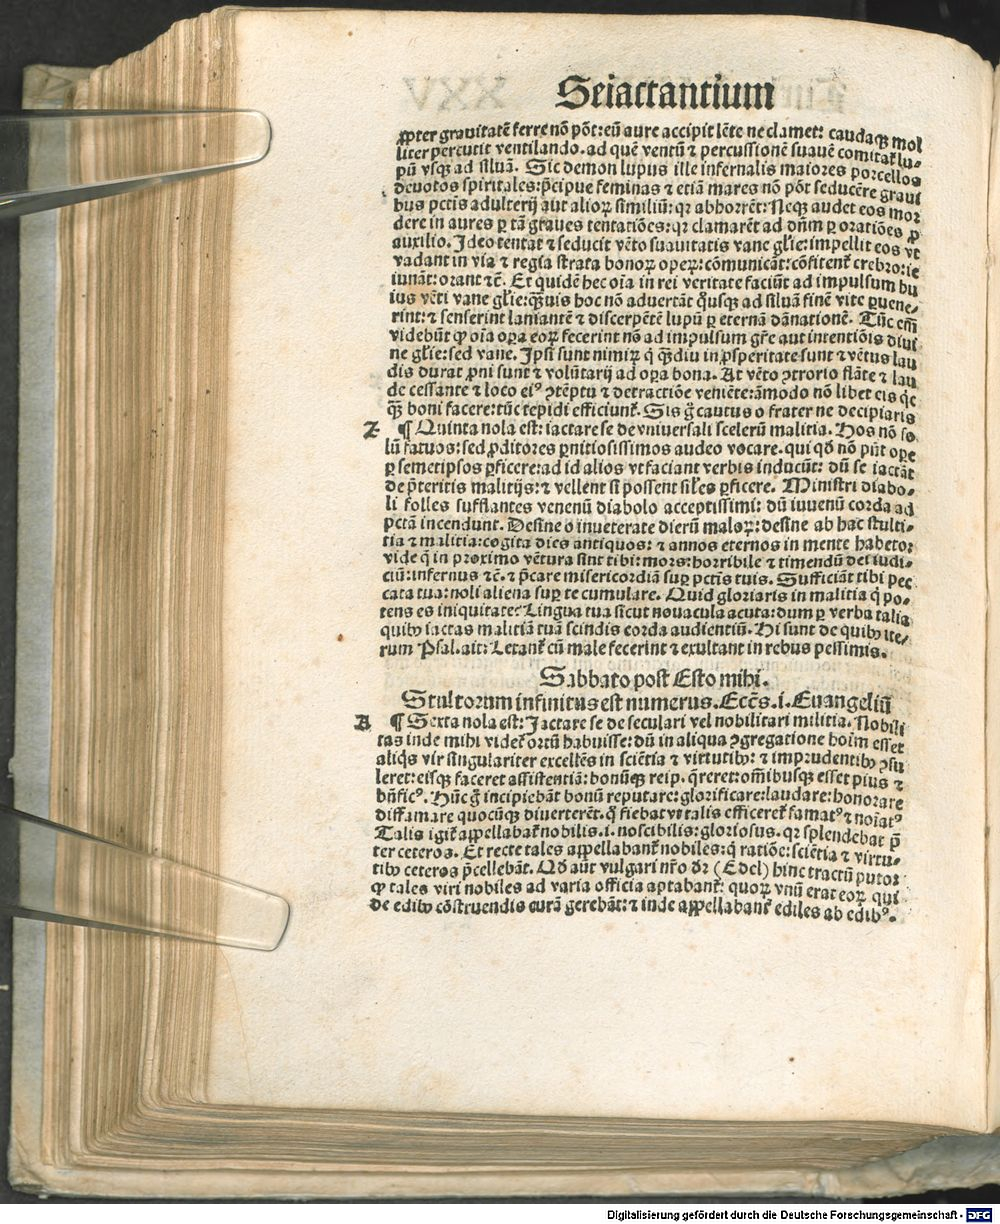 Seiactantium
ꝓpter grauitatē ferre nō pōt: eū aure accipit lēte ne clamet: caudaqꝫ mol
liter percutit ventilando. ad quē ventū ⁊ percussionē suauē comitat᷑ lu-
pū vsqꝫ ad siluā. Sic demon lupus ille infernalis maiores porcellos
deuotos spirituales: p̄cipue feminas ⁊ etiā mares nō pōt seducēre graui
bus pctīs adulterij aut alioꝝ similiū: qꝛ abhorrēt: Neqꝫ audet eos mor
dere in aures ꝑ tā graues tentatiōes: qꝛ clamarēt ad dn̄m ꝑ oratiōes ꝓ
auxilio. Ideo tentat ⁊ seducit vēto suauitatis vane gl̄ie: impellit eos vt
vadant in via ⁊ regia strata bonoꝝ opeꝝ: cōmunicāt: cōfitent᷑ crebro: ie
iunāt: orant ⁊c̄. Et quidē hec oīa in rei veritate faciūt ad impulsum hu
ius vēti vane gl̄ie: qͣꝫuis hoc nō aduertāt qͦusqꝫ ad siluā finē vite ꝑuene-
rint: ⁊ senserint laniantē ⁊ discerpētē lupū ꝑ eternā dānationē. Tūc em̄
videbūt ꝙ oīa oꝑa eoꝝ fecerint nō ad impulsum gr̄e aut intentiōis diui
ne gl̄ie: sed vane. Ipsi sunt nimiꝝ q̇ qͣꝫdiu in ꝓsperitate sunt ⁊ vētus lau
dis durat ꝓni sunt ⁊ volūtarij ad oꝑa bona. At vēto ꝯtrario flāte ⁊ lau
de cessante ⁊ loco eiꝰ ꝯtēptu ⁊ detractiōe veniēte: āmodo nō libet eis qͥc
qͣꝫ boni facere: tūc tepidi efficiunt᷑. Sis g̊ cautus o frater ne decipiaris
Z ¶ Quinta nola est: iactare se de vniuersali scelerū malitia. Hos nō so
lū fatuos: sed ꝓditores ꝑnitiosissimos audeo vocare. qui qd̄ nō pn̄t oꝑe
ꝑ semetipsos ꝑficere: ad id alios vt faciant verbis inducūt: dū se iactāt
de p̄teritis malitijs: ⁊ vellent si possent sil̄es ꝑficere. Ministri diabo-
li folles sufflantes venenū diabolo acceptissimi: dū iuuenū corda ad
pctā incendunt. Desine o inueterate dierū maloꝝ: desine ab hac stulti-
tia ⁊ malitia: cogita dies antiquos: ⁊ annos eternos in mente habeto:
vide q̄ in proximo vētura sint tibi: mors: horribile ⁊ timendū dei iudi-
ciū: infernus ⁊c̄. ⁊ p̄care misericordiā suꝑ pctīs tuis. Sufficiāt tibi pec
cata tua: noli aliena suꝑ te cumulare. Quid gloriaris in malitia q̇ po-
tens es iniquitate? Lingua tua sicut nouacula acuta: dum ꝑ verba talia
quibꝰ iactas malitiā tuā scindis corda audientiū. Hi sunt de quibꝰ ite-
rum Psal. ait: Letant᷑ cū male fecerint ⁊ exultant in rebus pessimis.
Sabbato post Esto mihi.
Stultorum infinitus est numerus. Ecc̄s. i. Euangeliū
A ¶ Sexta nola est: Iactare se de seculari vel nobilitari militia. Nobili
tas inde mihi videt᷑ ortū habuisse: dū in aliqua ꝯgregatione hoīm esset
aliq̇s vir singulariter excellēs in sciētia ⁊ virtutibꝰ: ⁊ imprudentibꝰ ꝯsu
leret: eisqꝫ faceret assistentiā: bonūqꝫ reip. q̄reret: om̄ibusqꝫ esset pius ⁊
bn̄ficꝰ. Hūc g̊ incipiebāt bonū reputare: glorificare: laudare: honorare
diffamare quocūqꝫ diuerterēt. qͦ fiebat vt talis efficeret᷑ famatꝰ ⁊ noīatꝰ
Talis igit᷑ appellabat᷑ nobilis .i. noscibilis: gloriosus. qꝛ splendebat p̄
ter ceteros. Et recte tales appellabant᷑ nobiles: q̇ ratiōe: sciētia ⁊ virtu-
tibꝰ ceteros p̄cellebāt. Qd̄ aūt vulgari nr̄o dr̄ (Edel) hinc tractū putor
ꝙ tales viri nobiles ad varia officia aptabant᷑: quoꝝ vnū erat eoꝝ qui
de edibꝰ cōstruendis curā gerebāt: ⁊ inde appellabant᷑ ediles ab edibꝰ.
Digitalisierung gefördert durch die Deutsche Forschungsgemeinschaft - DFG